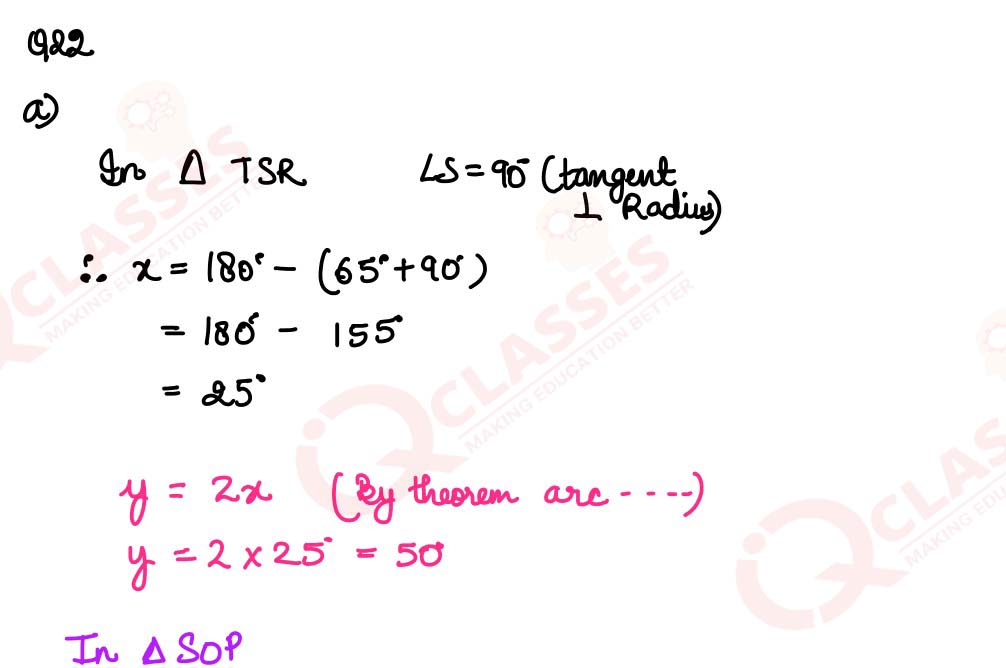 Q22
a)
In Δ TSR ∠S = 90° (tangent
⊥ Radius)
∴ x = 180° - (65° + 90°)
= 180° - 155°
= 25°
y = 2x (By theorem arc ----)
y = 2 × 25° = 50°
In Δ SOP
CLASSES
MAKING EDUCATION BETTER
iQ CLASSES
MAKING EDUCATION BETTER
iQ CLASSES
MAKING EDUCATION